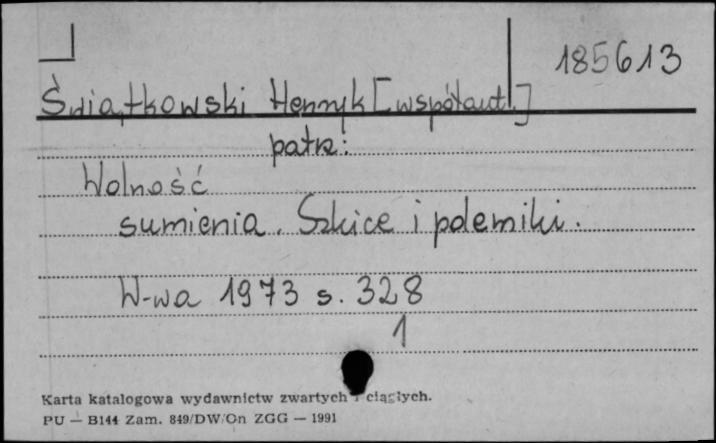 185613
Świątkowski Henryk [współaut.]
patrz:
Wolność
sumienia. Szkice i polemiki.
W-wa 1973 s. 328
1
Karta katalogowa wydawnictw zwartych i ciągłych.
PU — B144 Zam. 849/DW/On ZGG — 1991